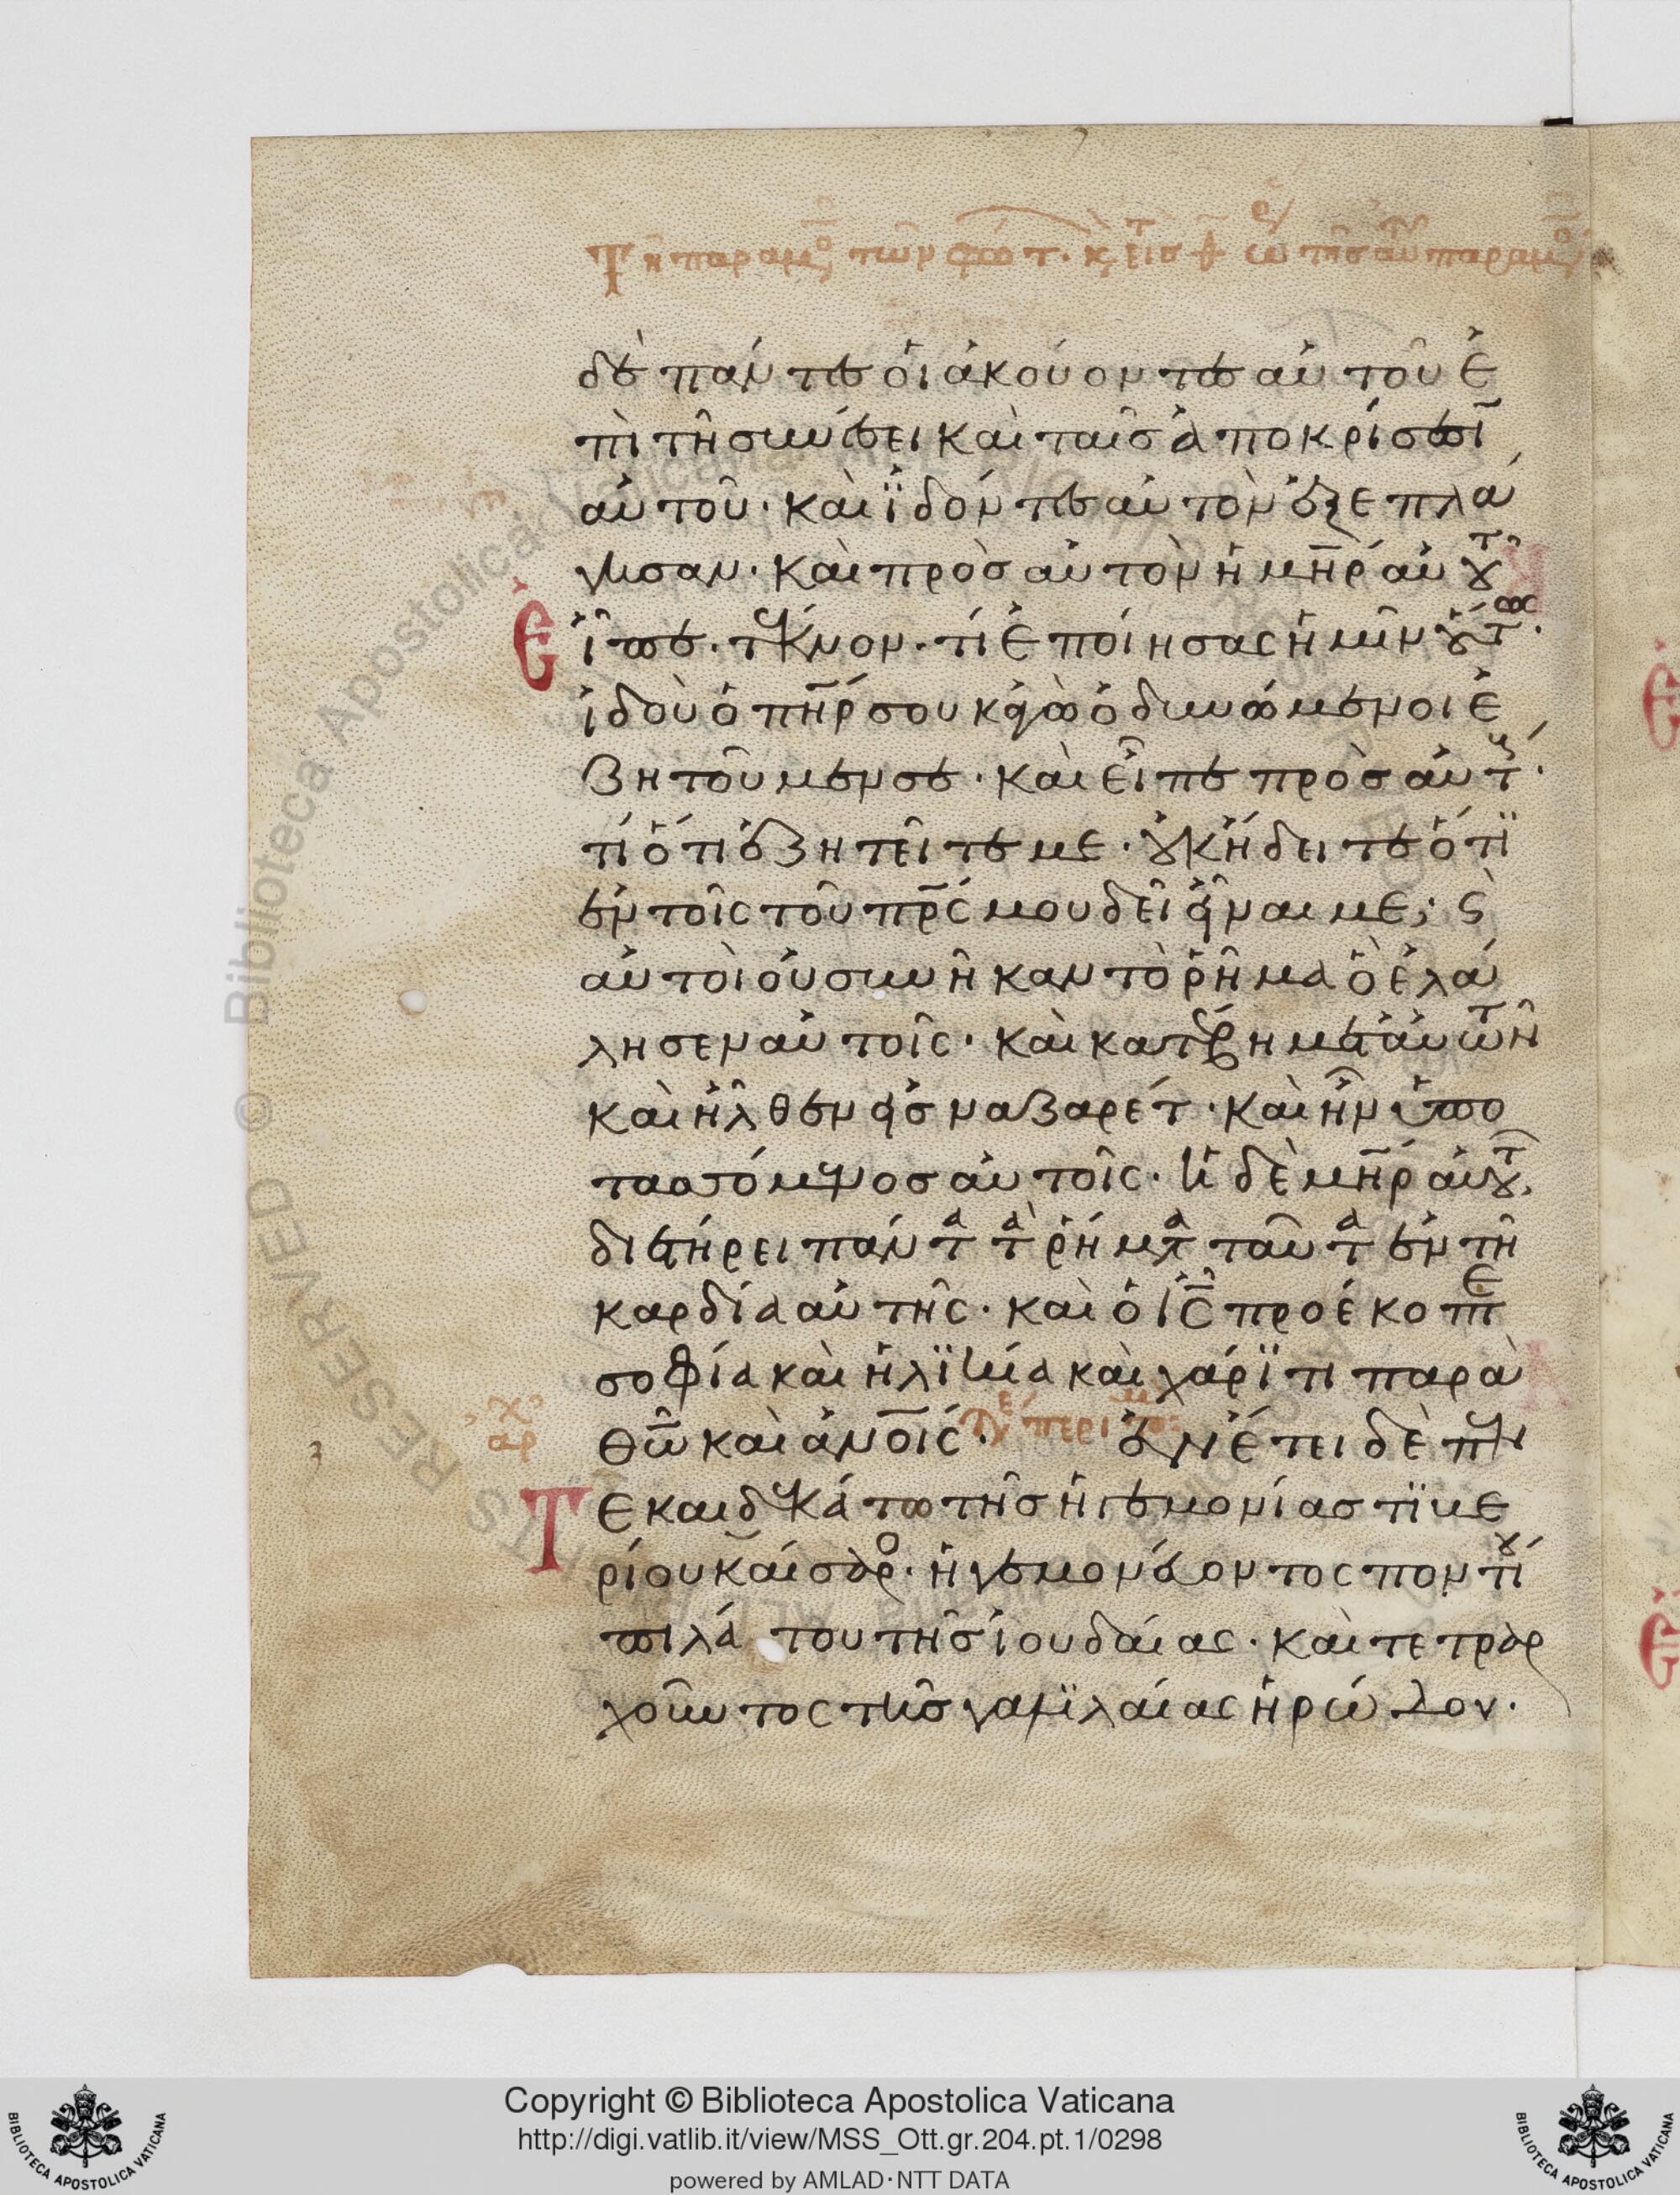 Τῆ παραμο τῶν φώτ. κ εἰς τ ἑω τῆς αὐτ παραμο
δὲ πάντες οἱ ἀκούοντες αὐτοῦ ἐ
πὶ τῆ συνέσει καὶ ταῖς ἀποκρίσεσι
αὐτοῦ· καὶ ϊδόντες αὐτὸν ἐξεπλά
γησαν· καὶ πρὸς αὐτὸν ἡ μη̅ρ αὐτοῦ
εἶπε· τέκνον· τί ἐποίησας ἡμῖν οὕτως·
ἰδοὺ ὁ πη̅ρ σου κἀγὼ ὀδυνώμενοι ἐ
ζητοῦμέν σε· καὶ εἶπε πρὸς αὐτούς·
τί ὅτι ἐζητεῖτε με· οὐκ ἤδειτε ὅτι
ἐν τοῖς τοῦ πρ̅ς μου δεῖ εἶναι με; κὶ
αὐτοὶ οὐ συνῆκαν τὸ ῥῆμα ὃ ἐλά
λησεν αὐτοῖς· καὶ κατέβη μετ' αὐτῶν
καὶ ἦλθεν εἰς ναζαρέτ· καὶ ἦν ὑπο
τασσόμενος αὐτοῖς· ἡ δὲ μη̅ρ αὐτοῦ
διετήρει πάντα τὰ ῥήματα ταῦτα ἐν τῆ
καρδία αὐτῆς· καὶ ὁ ι̅ς̅ προέκοπτε
σοφία καὶ ἡλϊκία καὶ χάρϊτι παρὰ
θ̅ω̅ καὶ ἀν̅οις·
ἀρχ
ἐν ἔτει δὲ πεν
Τεκαιδεκάτω τῆς ἡγεμονίας τϊβε
ρίου καίσαρος· ἡγεμονεύοντος ποντίου
πιλάτου τῆς ἰουδαίας· καὶ τετραρ
χοῦντος τῆς γαλϊλαίας ἡρώδου·
Copyright © Biblioteca Apostolica Vaticana
http://digi.vatlib.it/view/MSS_Ott.gr.204.pt.1/0298
powered by AMLAD·NTT DATA